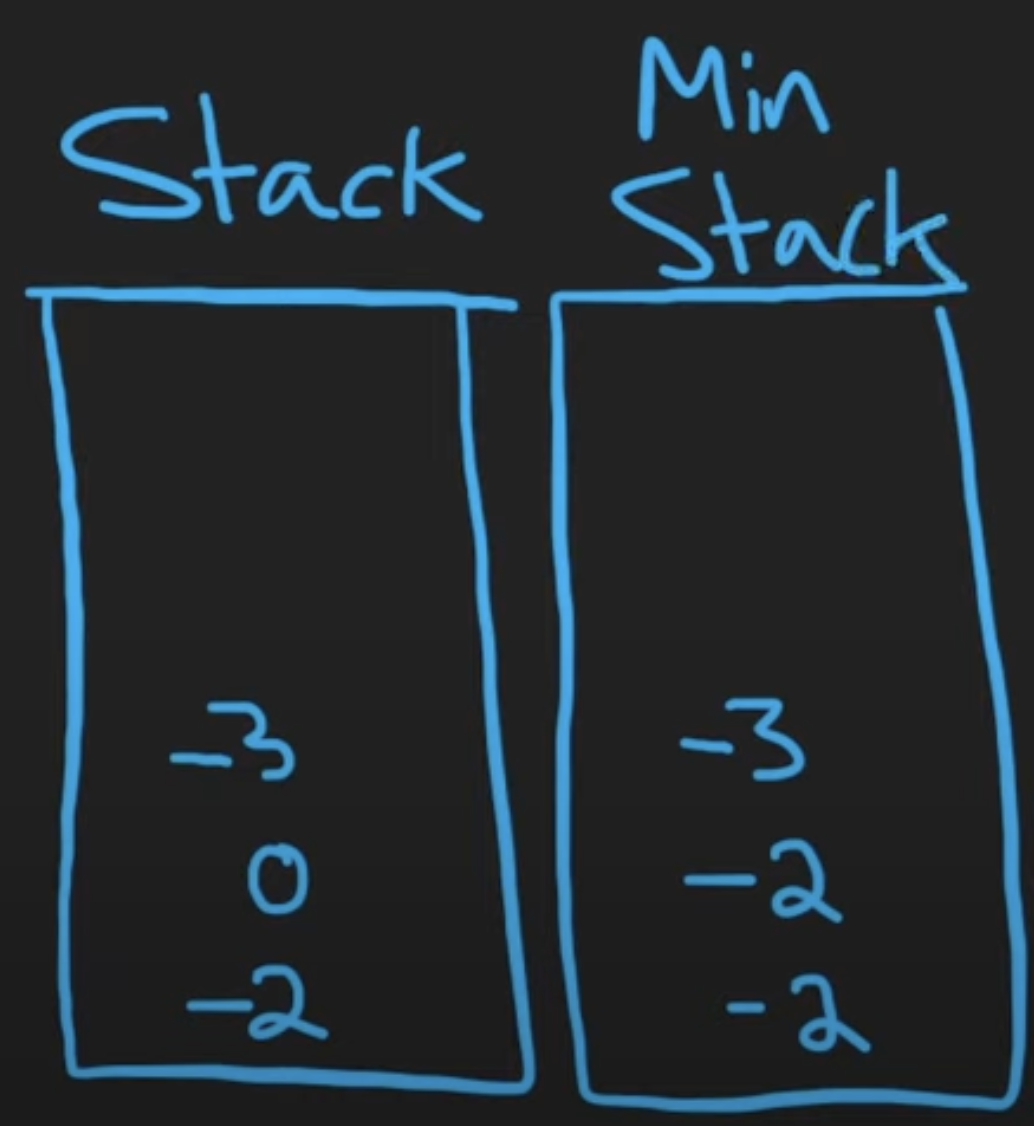 Stack
Min
Stack
-3
0
-2
-3
-2
-2